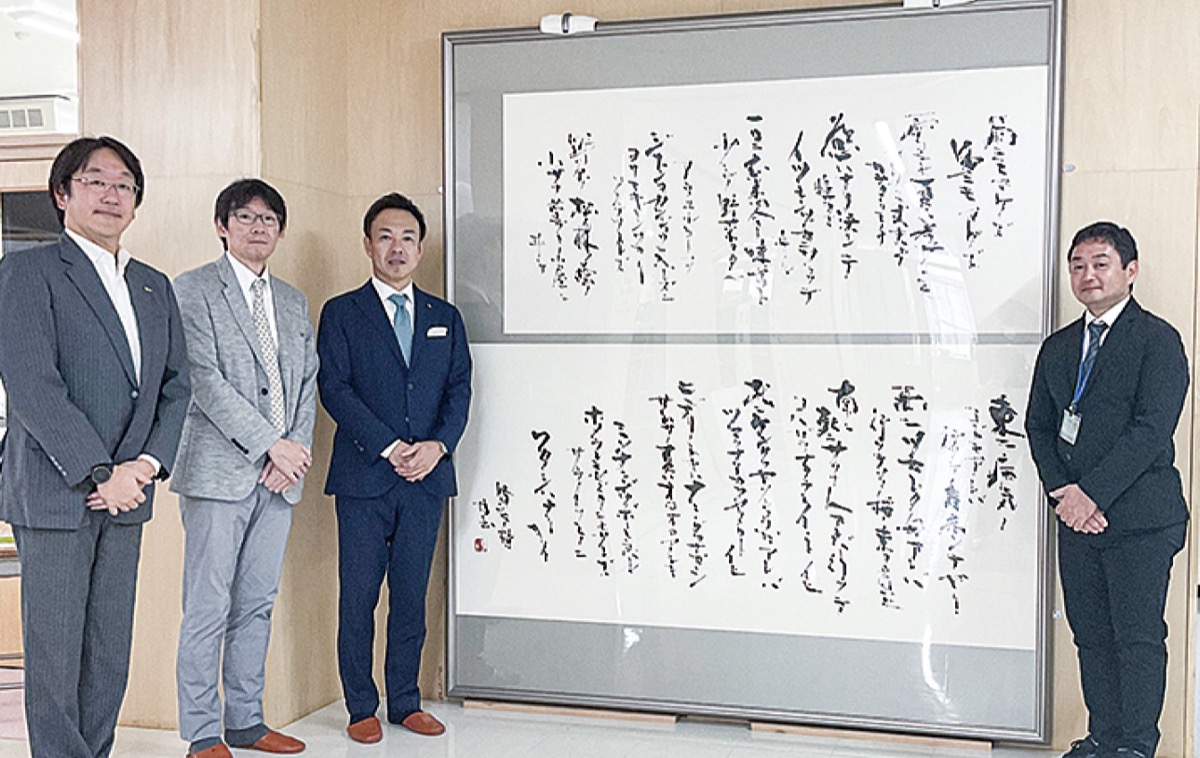 雨ニモマケズ
風ニモマケズ
雪ニモ夏ノ暑サニモ
丈夫ナ
慾ハナク決シテ
イツモシヅカニワラッテ
一日ニ玄米四合ト味噌ト
少シノ野菜ヲタベ
アラユルコトヲ
ジブンヲカンジョウニ入レズニ
ヨクミキキシワカリ
ソシテワスレズ
野原ノ松ノ林ノ蔭ノ
小サナ萱ブキノ小屋ニ
東ニ病気ノ
コドモアレバ
行ッテ看病シテヤリ
西ニツカレタ母アレバ
行ッテソノ稲ノ束ヲ負ヒ
南ニ死ニサウナ人アレバ行ッテ
コハガラナクテモイヽトイヒ
北ニケンクヮヤソショウガアレバ
ツマラナイカラヤメロトイヒ
ヒデリノトキハナミダヲナガシ
サムサノナツハオロオロアルキ
ミンナニデクノボートヨバレ
ホメラレモセズクニモサレズ
サウイフモノニ
ワタシハナリタイ